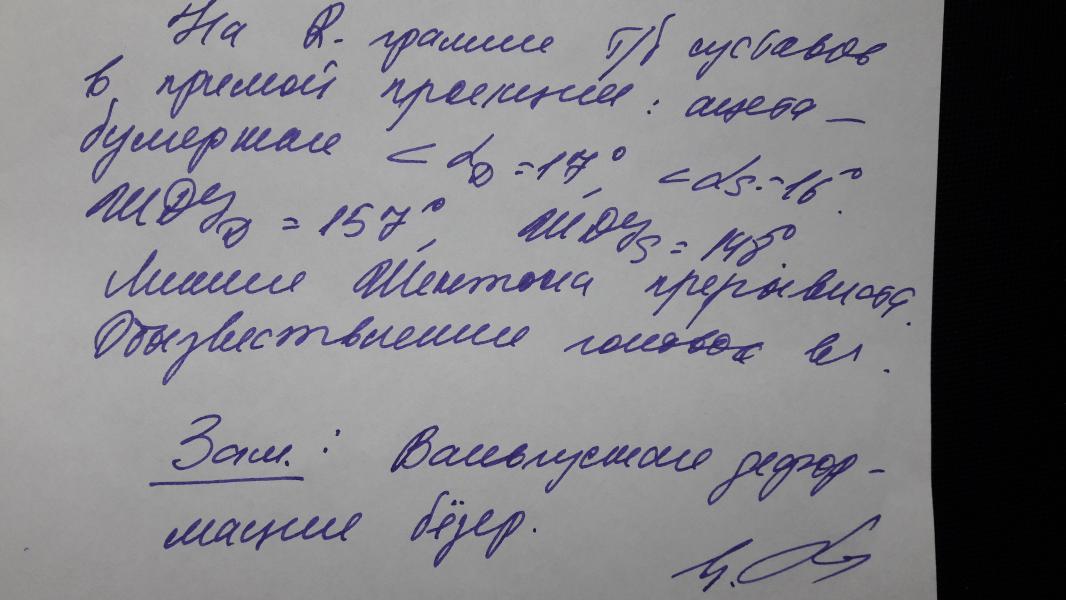 На R. грамме т/б суставов
в прямой проекции: ацета-
булярная < αD = 17°, < αS. = 16°.
ШДУD = 157°, ШДУS = 148°.
Линия Шентона прерывиста.
Обызвествление головок
Зак.: Вальгусная дефор-
мация бёдер.